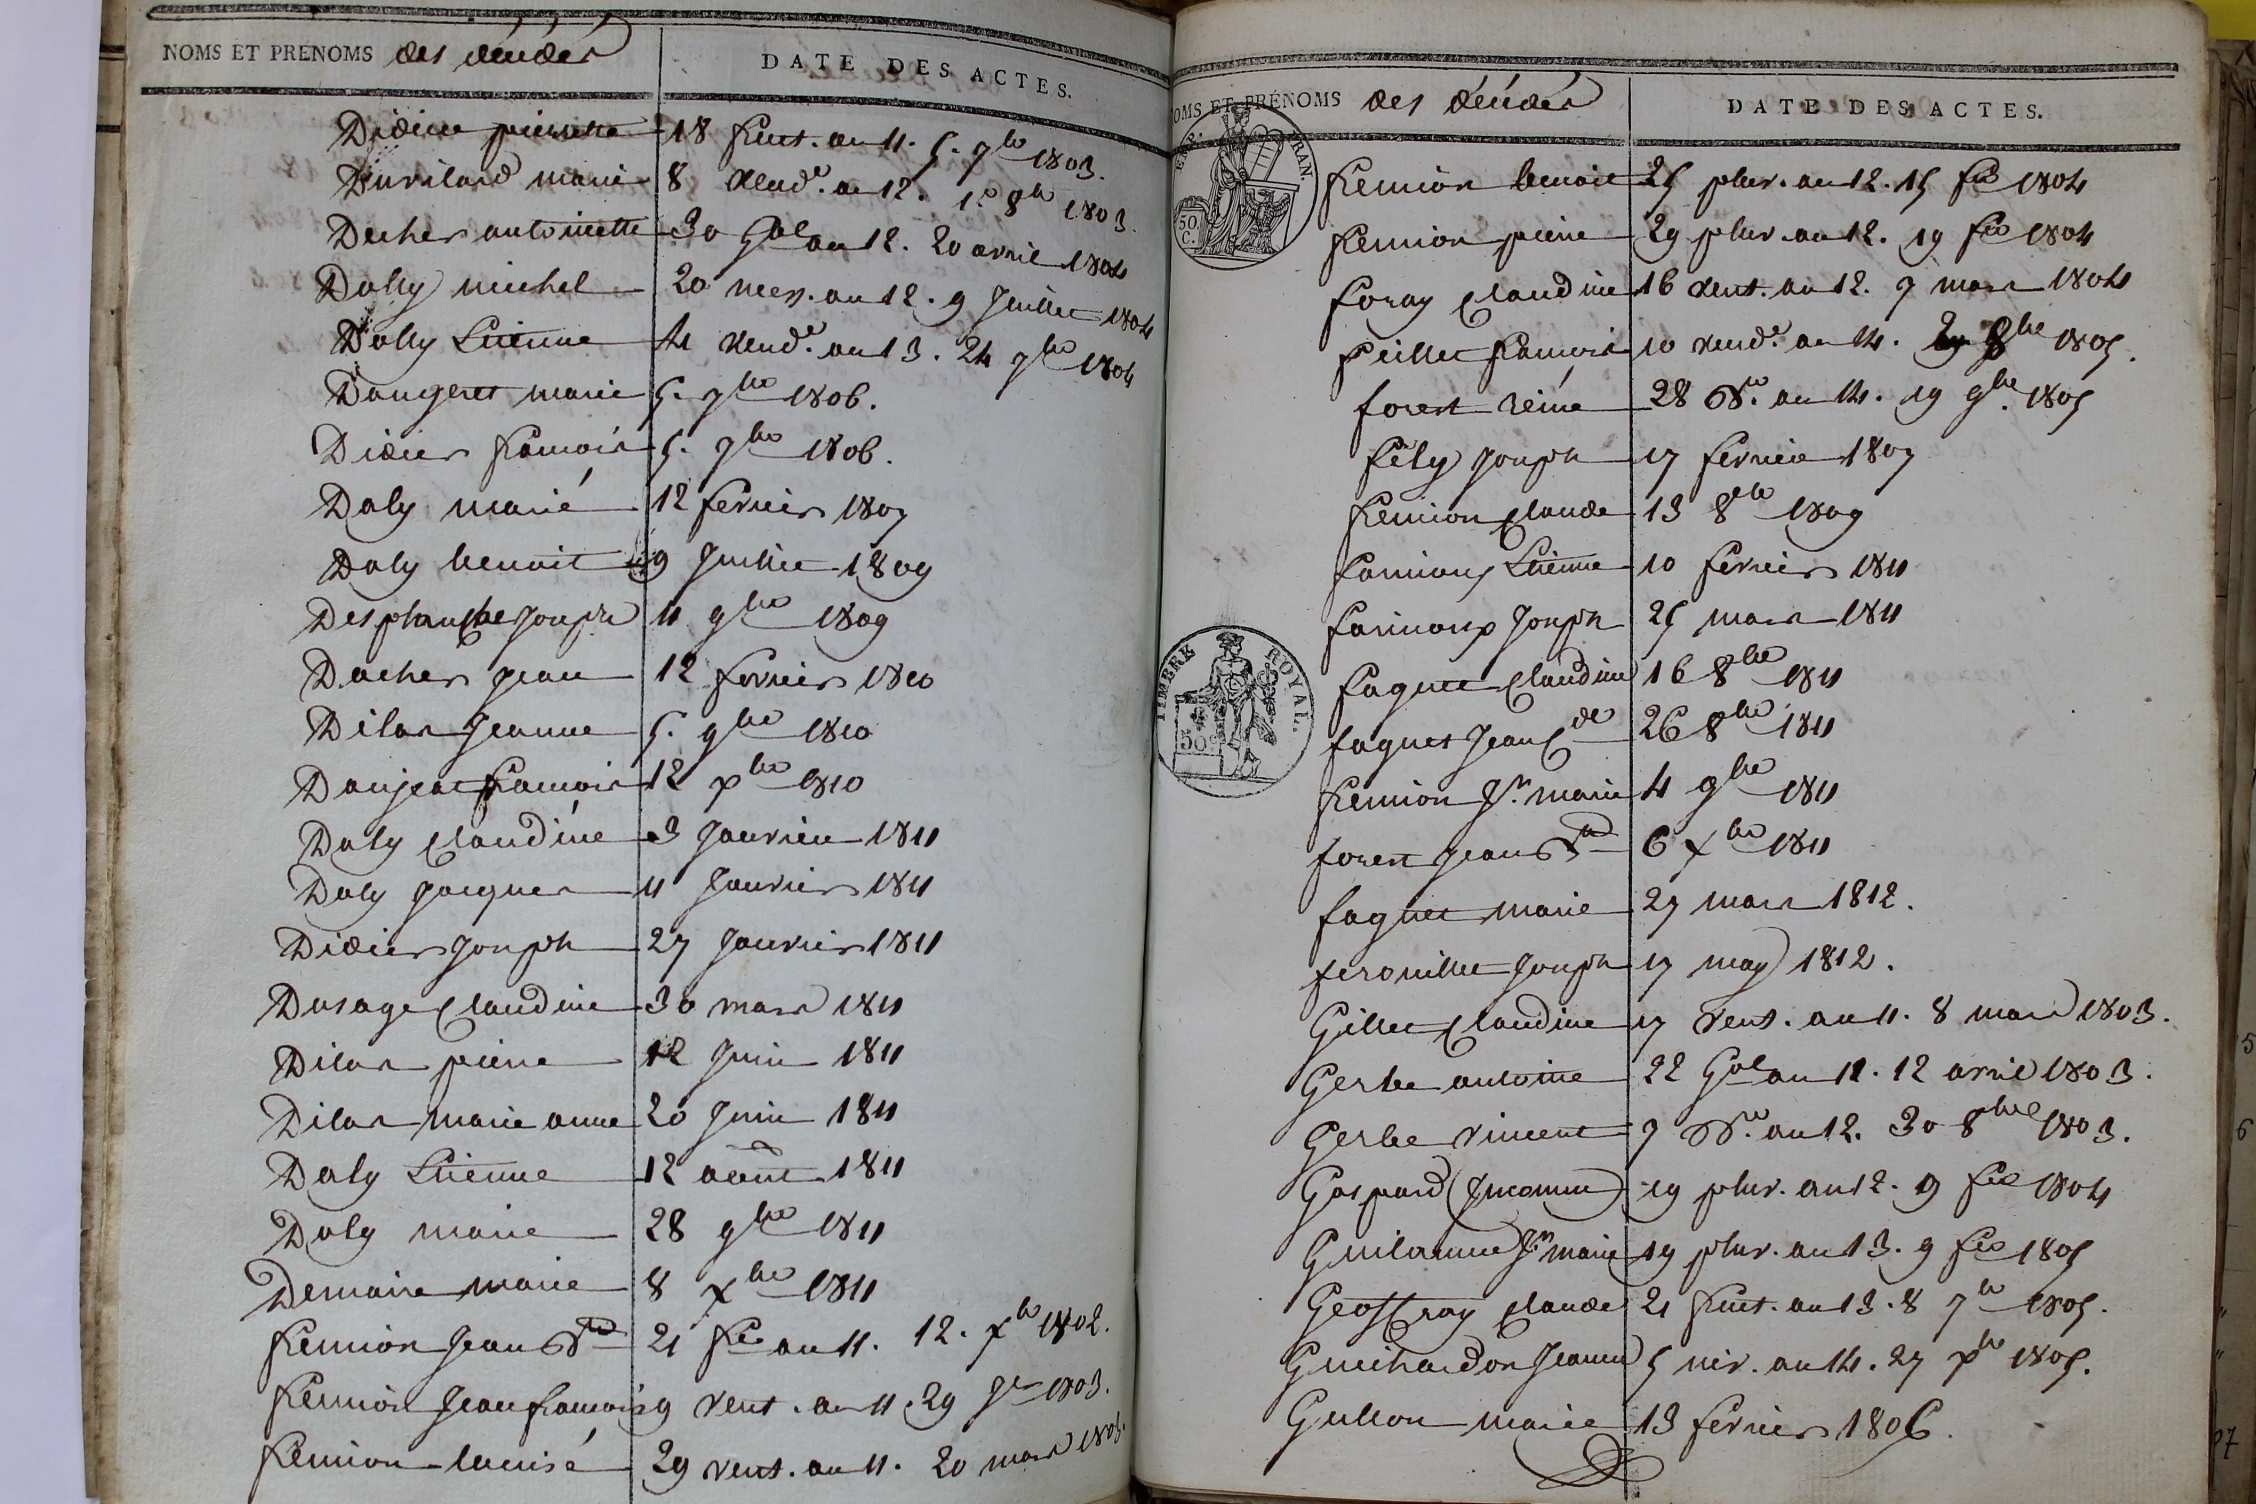 NOMS ET PRENOMS des décédés
DATE DES ACTES.
Didier pierrette 18 fruct. an 11. 5. 7bre 1803.
marie 8 vendre. an 12. 1er 8bre 1803.
Decher antoinette 30 Gal an 12. 20 avril 1804
Dolly michel 20 mess. an 12. 9 Juillet 1804
Dolly Etienne 4 vendre. an 13. 24 7bre 1804
Daugeret marie 5. 7bre 1806.
Didier francois 5. 9bre 1806.
Doly marie 12 fevrier 1807
Doly benoit 9 Juillet 1809
Desplanche Joseph 11 9bre 1809
Dacher jean 12 fevrier 1810
Dilas Jeanne 5. 9bre 1810
Daujeat francois 12 xbre 1810
Doly Claudine 3 Janvier 1811
Doly Jacques 11 Janvier 1811
Didier Joseph 27 Janvier 1811
Dusage Claudine 30 mars 1811
Dilas pierre 12 Juin 1811
Dilas marie anne 20 Juin 1811
Doly Etienne 12 août 1811
Doly marie 28 9bre 1811
Demaire marie 8 xbre 1811
fremion Jean Bte 21 fre an 11. 12. xbre 1802.
fremion Jean francois 9 vent. an 11. 29 1803.
fremion 29 vent. an 11. 20 mars 1803.
NOMS ET PRÉNOMS des décédés
DATE DES ACTES.
RÉP. FRAN.
50 C.
fremion benoit 25 pluv. an 12. 15 fer 1804
fremion pierre 29 pluv. an 12. 19 fer 1804
foray Claudine 16 vent. an 12. 7 mars 1804
feillet francois 10 vendre. an 14. 8bre 1805.
forest reine 28 Bre. an 14. 19 9bre. 1805
fély Joseph 17 fevrier 1807
fremion Claude 13 8bre 1809
Etienne 10 fevrier 1811
farimoux Joseph 25 mars 1811
TIMBRE ROYAL.
50c
faguet Claudine 16 8bre 1811
faguet Jean Cde 26 8bre 1811
fremion Jn. marie 4 9bre 1811
forest jean Bte 6 xbre 1811
faguet marie 27 mars 1812.
ferouillet Joseph 17 may 1812.
Gillet Claudine 17 vent. an 11. 8 mars 1803.
Gerbe antoine 22 Gal an 11. 12 avril 1803.
Gerbe vincent 7 Bre. an 12. 30 8bre 1803.
Gaspard (Inconnu) 19 pluv. an 12. 9 fer 1804
Guilaume Jn. marie 19 pluv. an 13. 9 fer 1805
Geoffray Claude 21 fruct. an 13. 8 7bre 1805.
Guichardon Jeanne 5 niv. an 14. 27 xbre 1805.
Gullon marie 13 fevrier 1806.